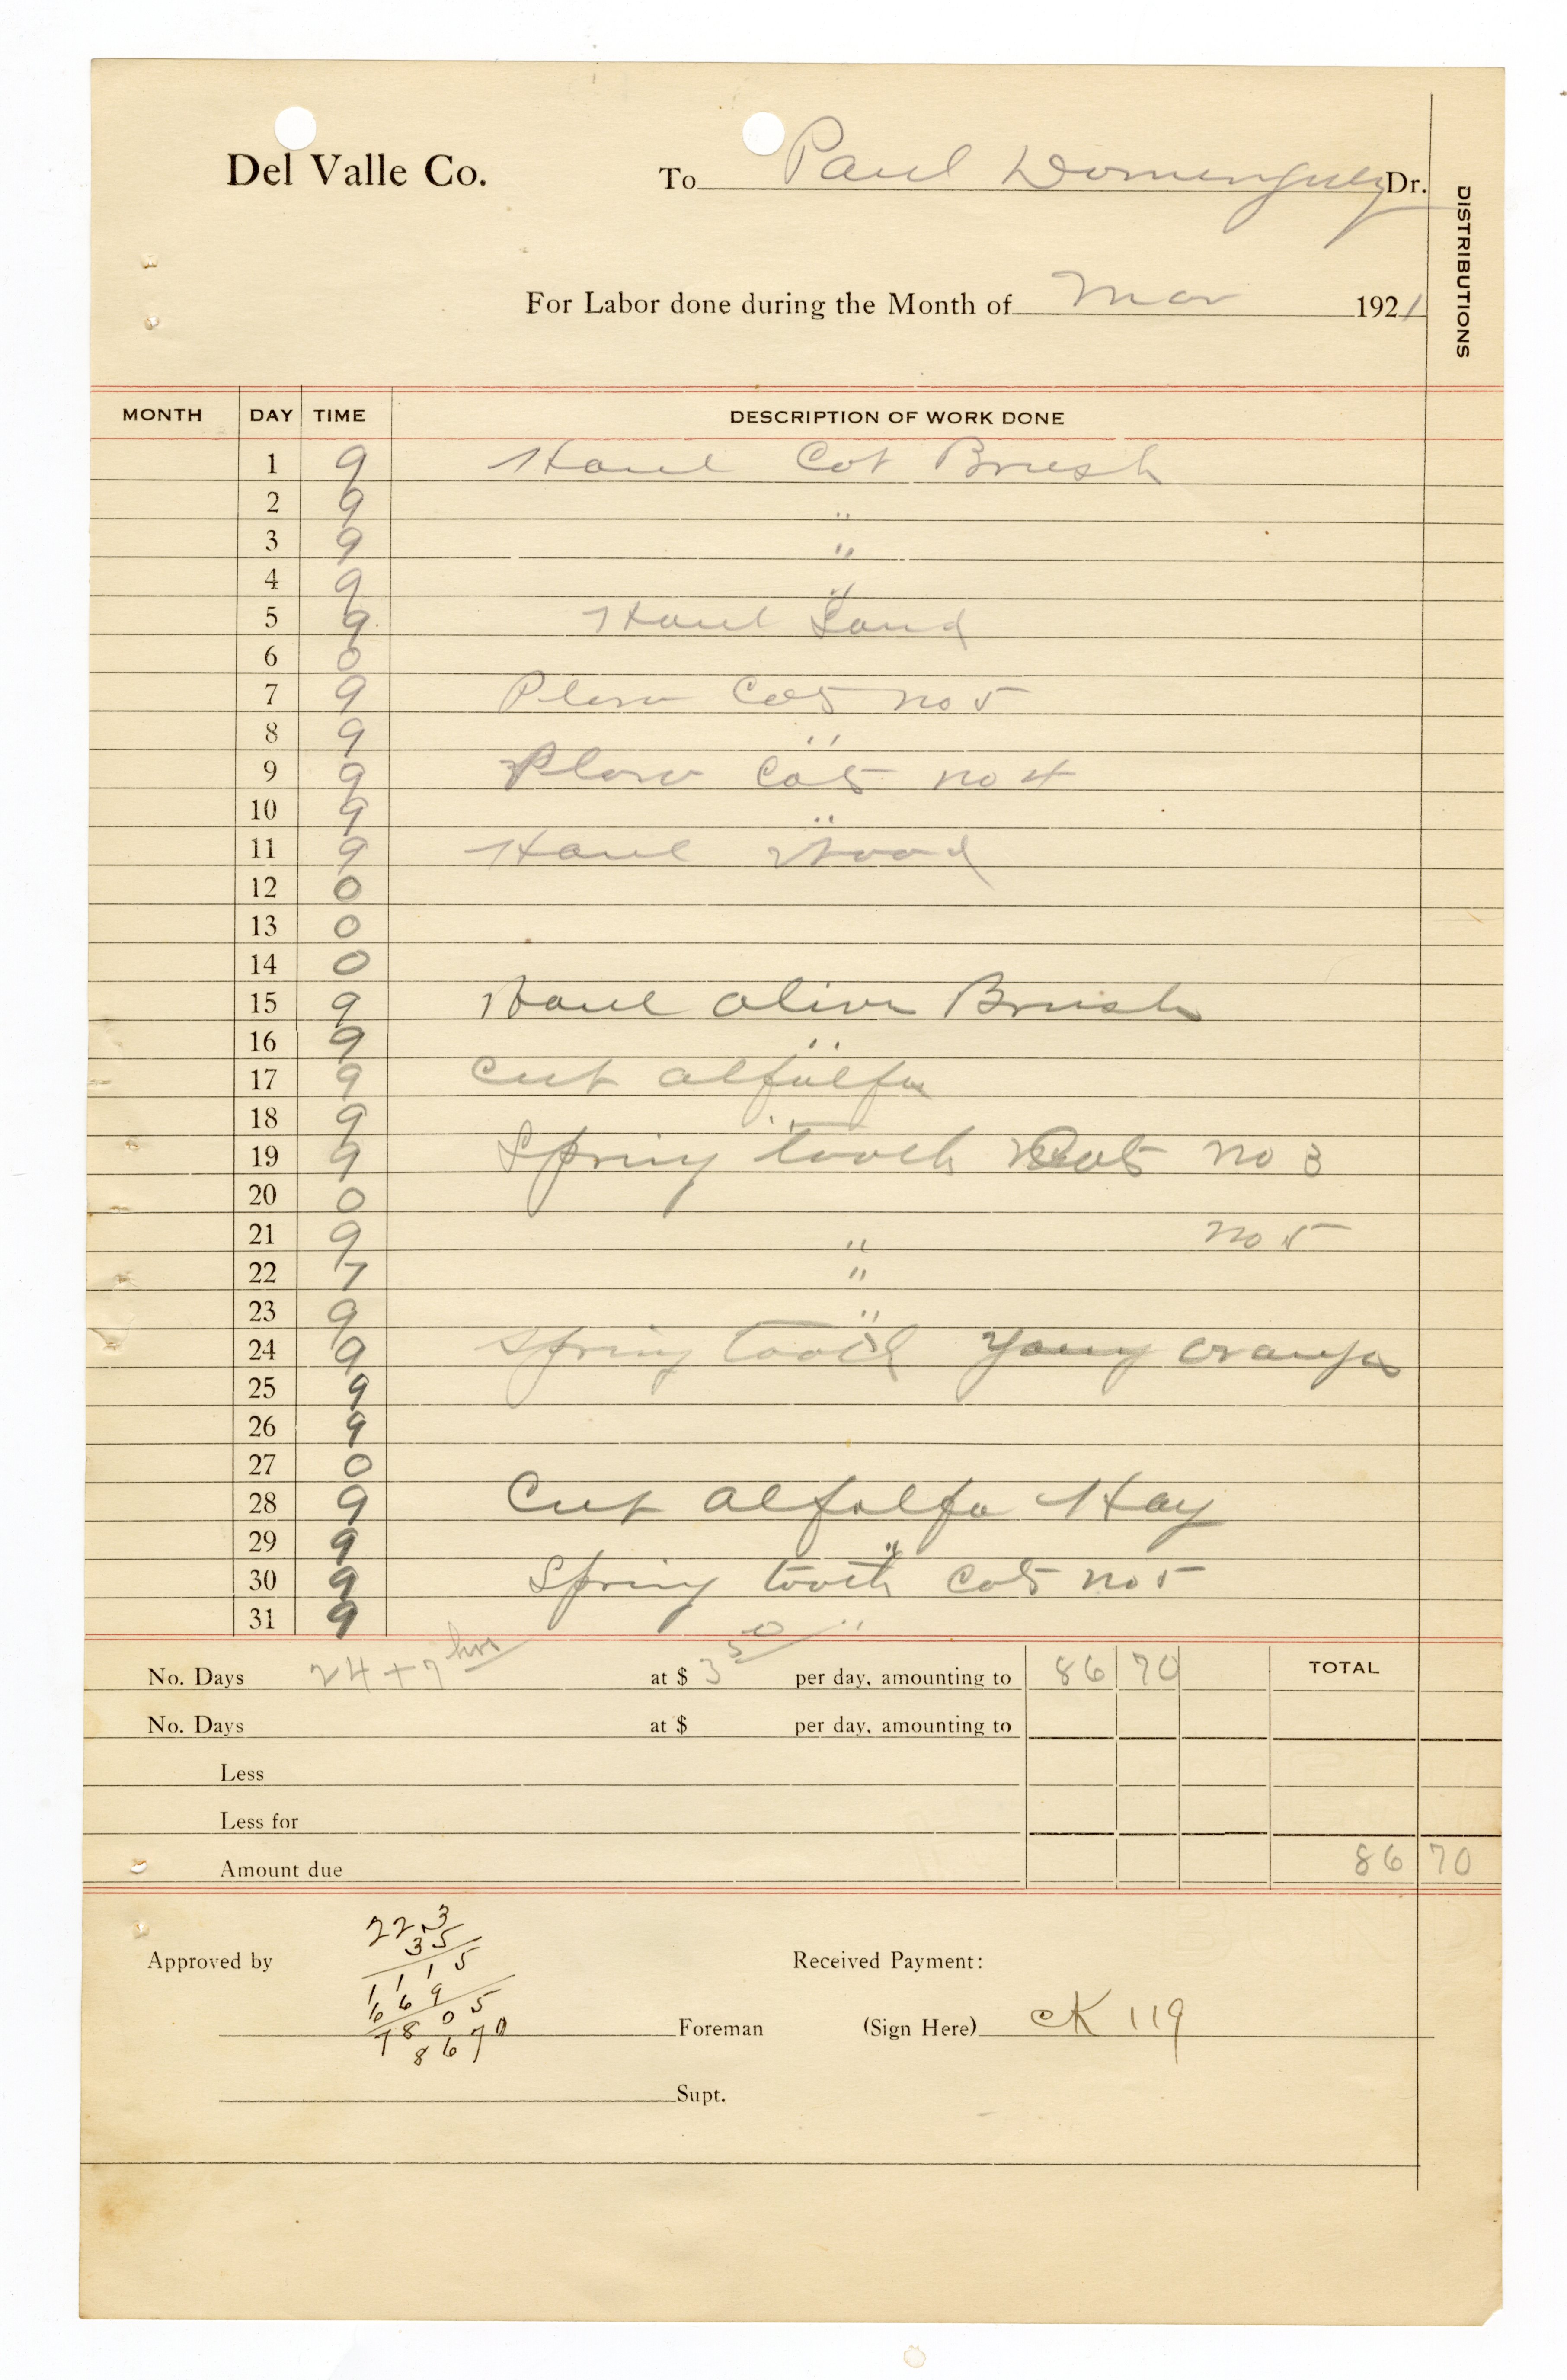 Del Valle Co. To Paul Dominguez Dr.
DISTRIBUTIONS
For Labor done during the Month of Mar 1921
MONTH DAY TIME DESCRIPTION OF WORK DONE
1 9 Haul Cot Brush
2 9 "
3 9 "
4 9 "
5 9 Haul Sand
6 0
7 9 Plow Cots no 5
8 9 "
9 9 Plow Cots no 4
10 9 "
11 9 Haul Wood
12 0
13 0
14 0
15 9 Haul olive Brush
16 9 "
17 9 Cut alfalfa
18 9 "
19 9 Spring tooth Cots no 3
20 0
21 9 " no 5
22 7 "
23 9 "
24 9 Spring tooth young oranges
25 9
26 9
27 0
28 9 Cut alfalfa Hay
29 9 "
30 9 Spring tooth Cots no 5
31 9 "
No. Days 24 + 7 hrs at $ 3 50 per day, amounting to 86 70 TOTAL
No. Days at $ per day, amounting to
Less
Less for
Amount due 86 70
223
35
1115
669
7805
8670
Approved by Received Payment:
Foreman (Sign Here) CK 119
Supt.